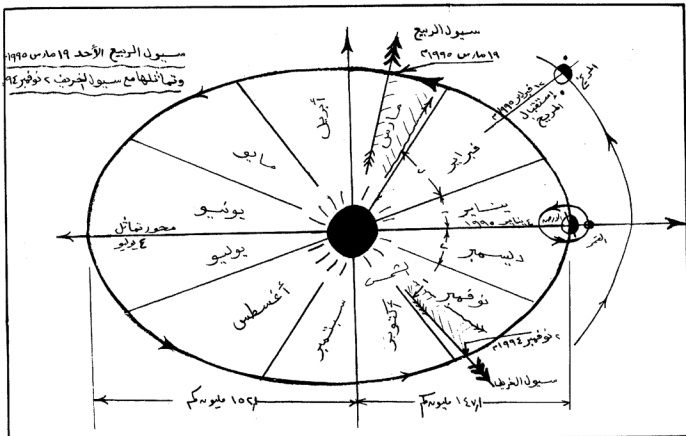 سيول الربيع الأحد ١٩ مارس ١٩٩٥
وتماثلها مع سيول الخريف ٢ نوفمبر ٩٤
سيول الربيع
١٩ مارس ١٩٩٥م
المريخ
١٢ فبراير ١٩٩٥م
إستقبال
المريخ
أبريل
مارس
فبراير
مايو
يناير
٤ يناير ١٩٩٥
الأرض
القمر
يونيو
محور تماثل
٤ يوليو
يوليو
ديسمبر
الشمس
نوفمبر
أغسطس
سبتمبر
أكتوبر
٢ نوفمبر ١٩٩٤م
سيول الخريف
١٥٢٫١ مليون كم
١٤٧٫١ مليون كم